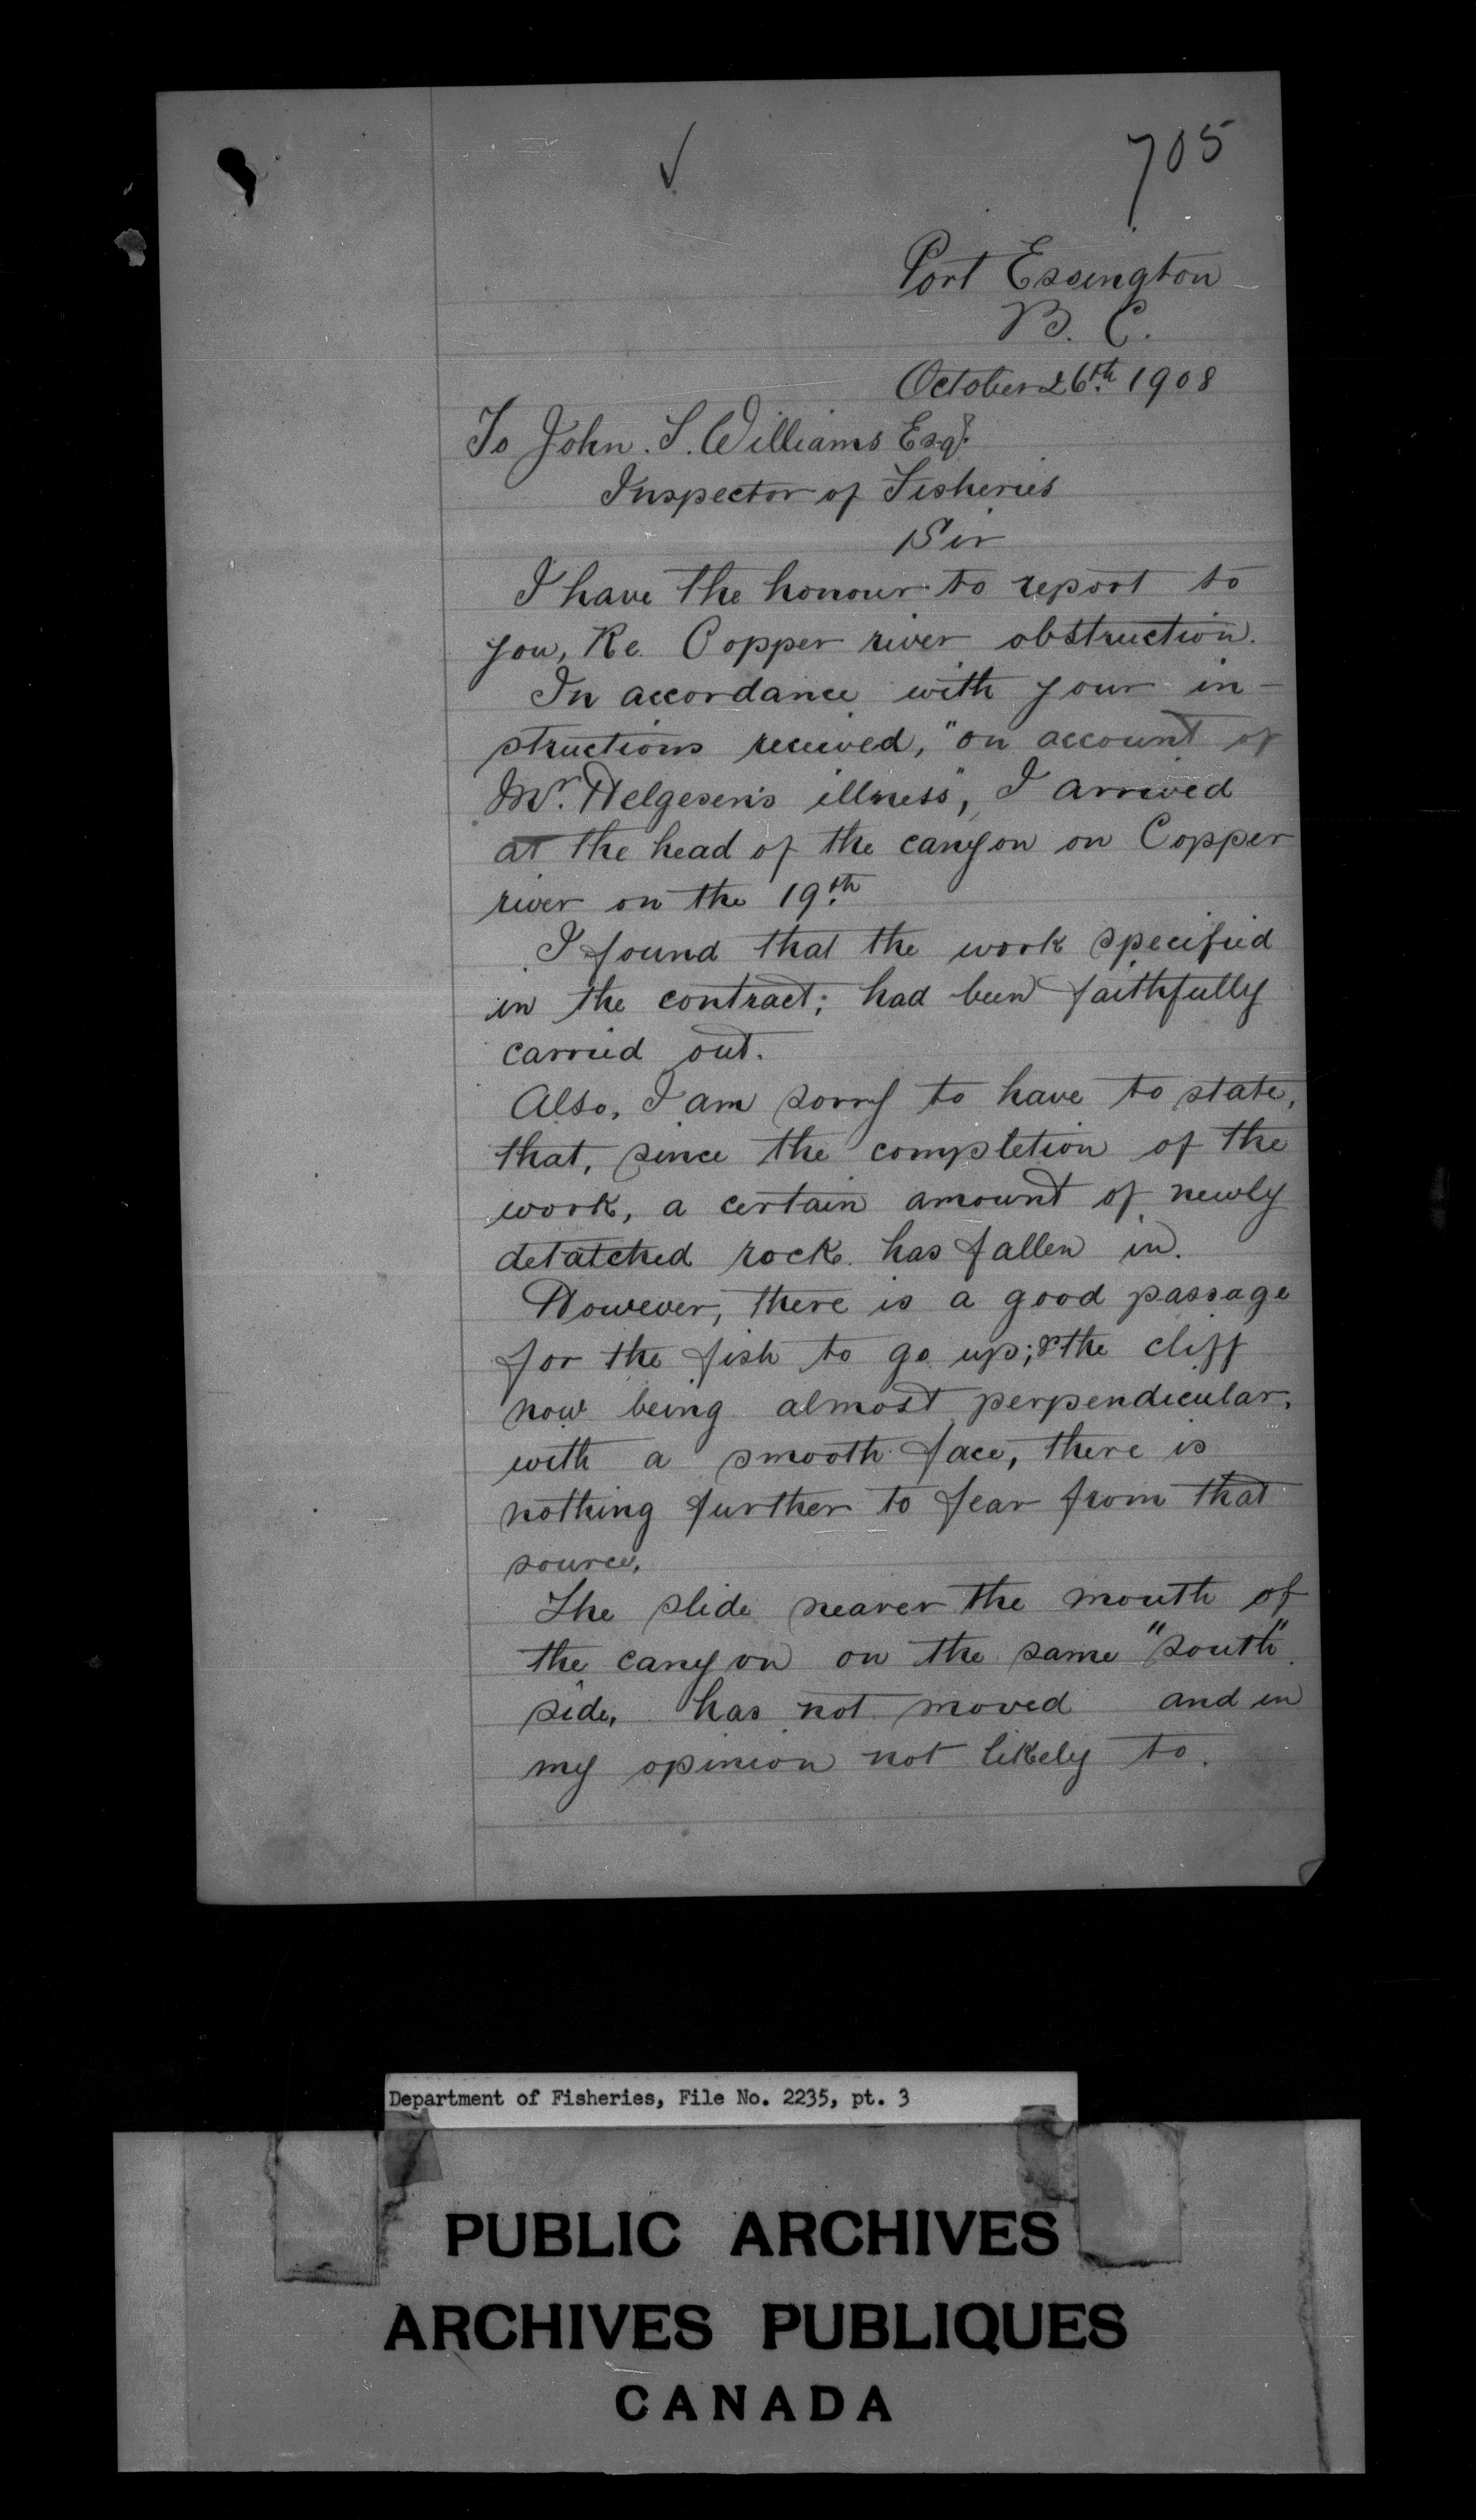 705
Port Essington
B. C.
October 26th 1908
To John. S. Williams Esqr.
Inspector of Fisheries
Sir
I have the honour to report to
you, Re. Copper river obstruction.
In accordance with your in-
structions received, "on account of
Mr. Helgesen's illness", I arrived
at the head of the canyon on Copper
river on the 19th
I found that the work specified
in the contract; had been faithfully
carried out.
Also, I am sorry to have to state,
that, since the completion of the
work, a certain amount of newly
detatched rock has fallen in.
However, there is a good passage
for the fish to go up; & the cliff
now being almost perpendicular,
with a smooth face, there is
nothing further to fear from that
source.
The slide nearer the mouth of
the canyon on the same "south"
side, has not moved and in
my opinion not likely to.
Department of Fisheries, File No. 2235, pt. 3
PUBLIC ARCHIVES
ARCHIVES PUBLIQUES
CANADA